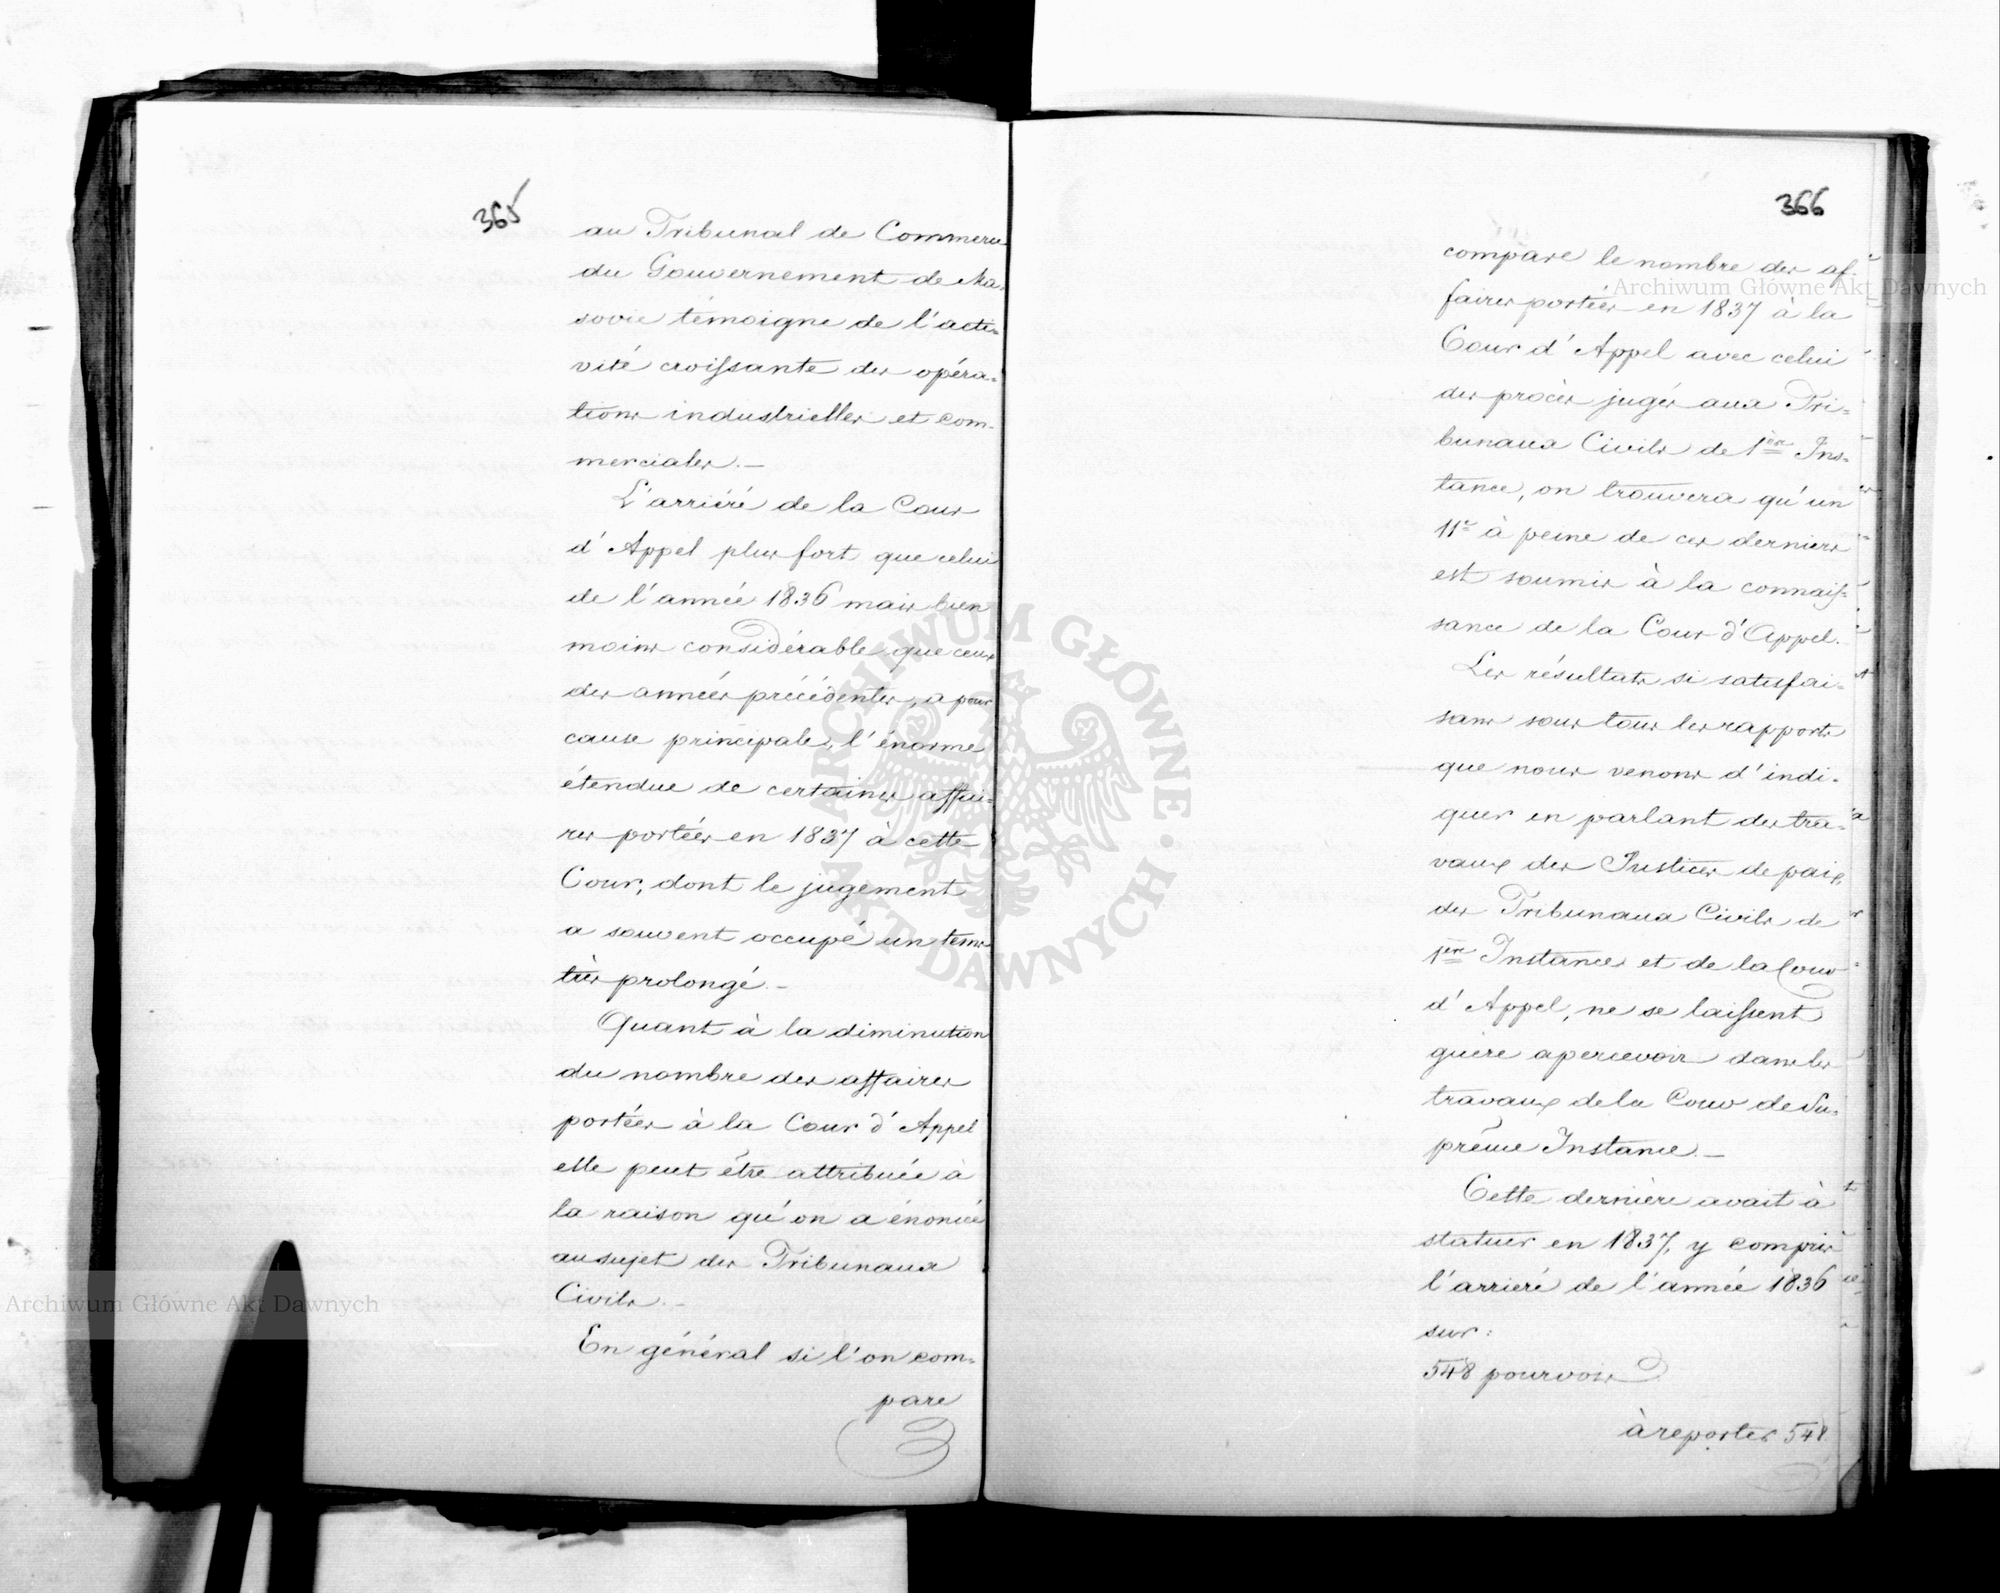 365
au Tribunal de Commerce
du Gouvernement de Ma-
sovie témoigne de l'acti-
vité croissante des opéra-
tions industrielles et com-
merciales.—
L'arriéré de la Cour
d'Appel plus fort que celui
de l'année 1836 mais bien
moins considérable que ceux
des années précédentes, a pour
cause principale, l'énorme
étendue de certaines affai-
res portées en 1837 à cette
Cour, dont le jugement
a souvent occupé un tems
très prolongé.—
Quant à la diminution
du nombre des affaires
portées à la Cour d'Appel
elle peut être attribuée à
la raison qu'on a énoncée
au sujet des Tribunaux
Civils.—
En général si l'on com-
pare
366
compare le nombre des af-
faires portées en 1837 à la
Cour d'Appel avec celui
des procès jugés aux Tri-
bunaux Civils de 1ère Ins-
tance, on trouvera qu'un
11e à peine de ces derniers
est soumis à la connais-
sance de la Cour d'Appel.
Les résultats si satisfai-
sans sous tous les rapports
que nous venons d'indi-
quer en parlant des tra-
vaux des Justices de paix,
des Tribunaux Civils de
1ère Instance et de la Cour
d'Appel, ne se laissent
guère apercevoir dans les
travaux de la Cour de Su-
prême Instance.—
Cette dernière avait à
statuer en 1837, y compris
l'arrieré de l'année 1836
sur:
548 pourvois
à reporter 548.
Archiwum Główne Akt Dawnych
Archiwum Główne Akt Dawnych
ARCHIWUM GŁÓWNE · AKT DAWNYCH ·